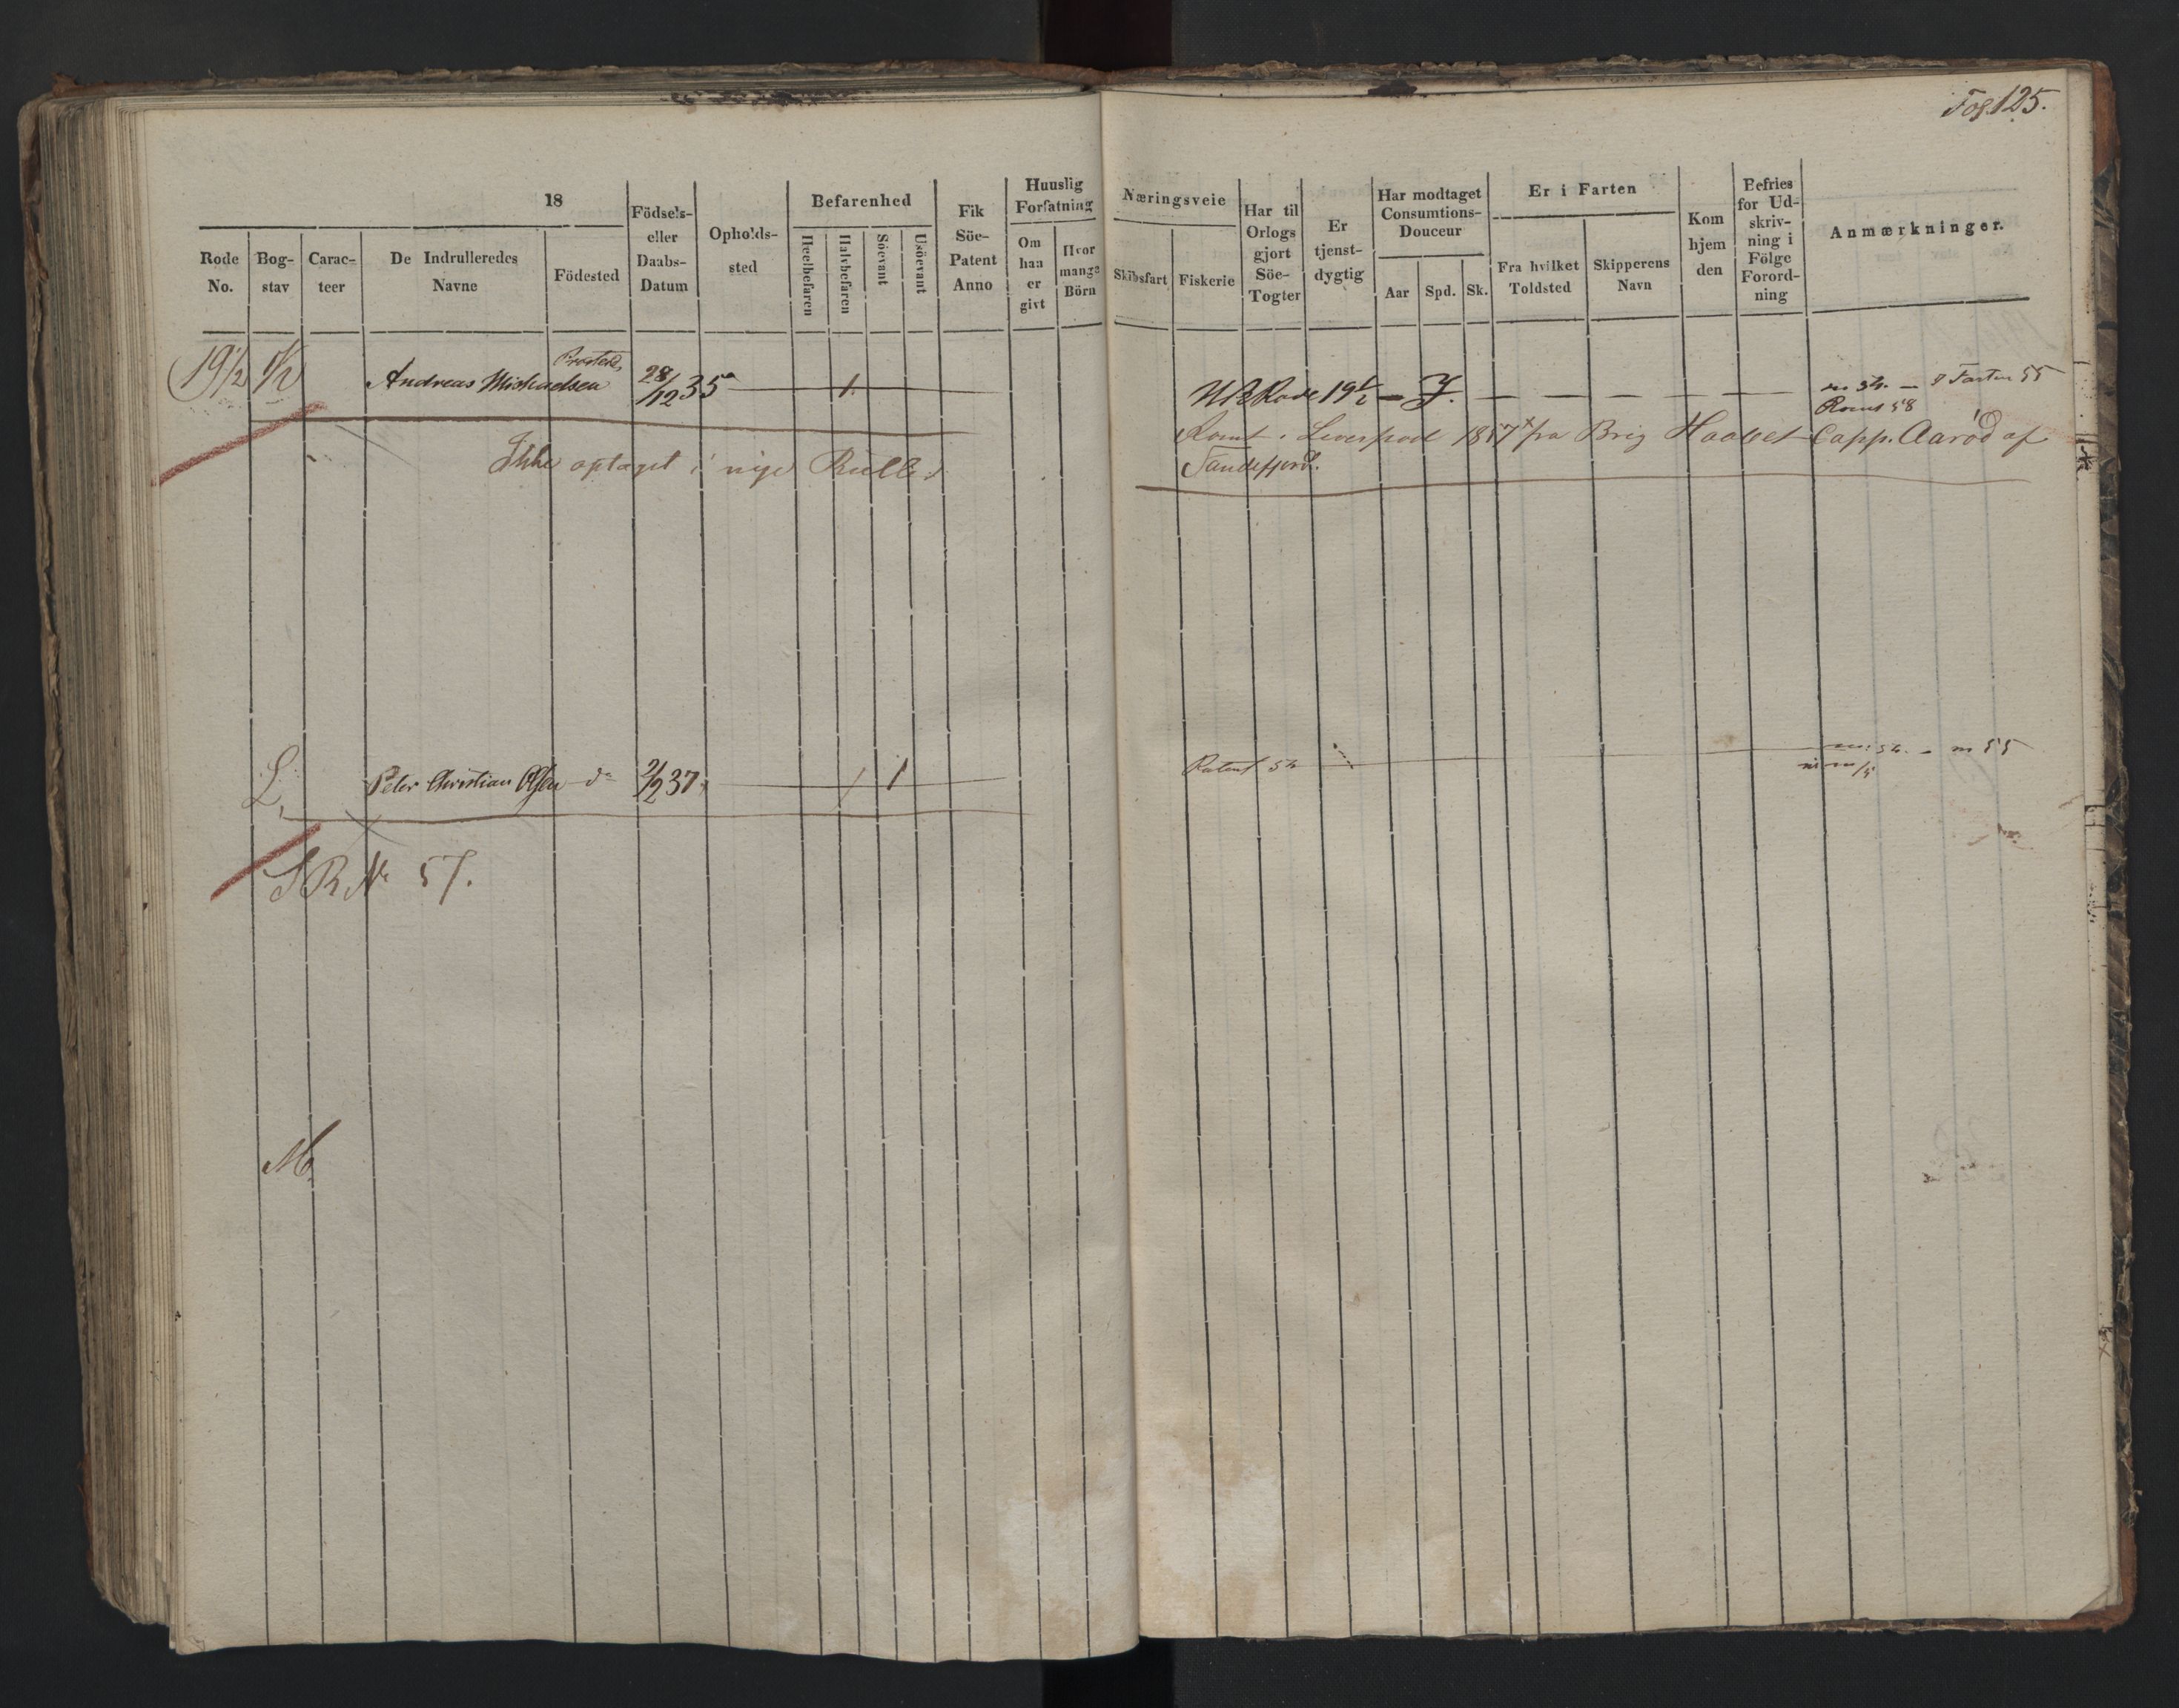 Fog. 125.
18
Rode No.
Bog- stav
Carac- teer
De Indrulleredes Navne
Födested
Födsels- eller Daabs- Datum
Opholds- sted
Befarenhed
Heelbefaren
Halvbefaren
Söevant
Usöevant
Fik Söe- Patent Anno
Huuslig Forfatning
Om han er givt
Hvor mange Börn
Næringsveie
Skibsfart
Fiskerie
Har til Orlogs gjort Söe- Togter
Er tjenst- dygtig
Har modtaget Consumtions- Douceur
Aar
Spd.
Sk.
Er i Farten
Fra hvilket Toldsted
Skipperens Navn
Kom hjem den
Befries for Ud- skriv- ning i Fölge Forord- ning
Anmærkninger.
19½ K½ Andreas Michaelsen 28/12 35 1. Rode 19½ — J. — 54. — I Farten 55
Rømt 58
Rømt i Liverpool 1857 fra Brig Haabet Capp. Aaröd af
Sandefjord.
Ikke optaget i nye Rulle.
L. Peter Christian Olsen do 2/2 37. 1 1 Patent 54 54. — m 55
S R No 57.
M.